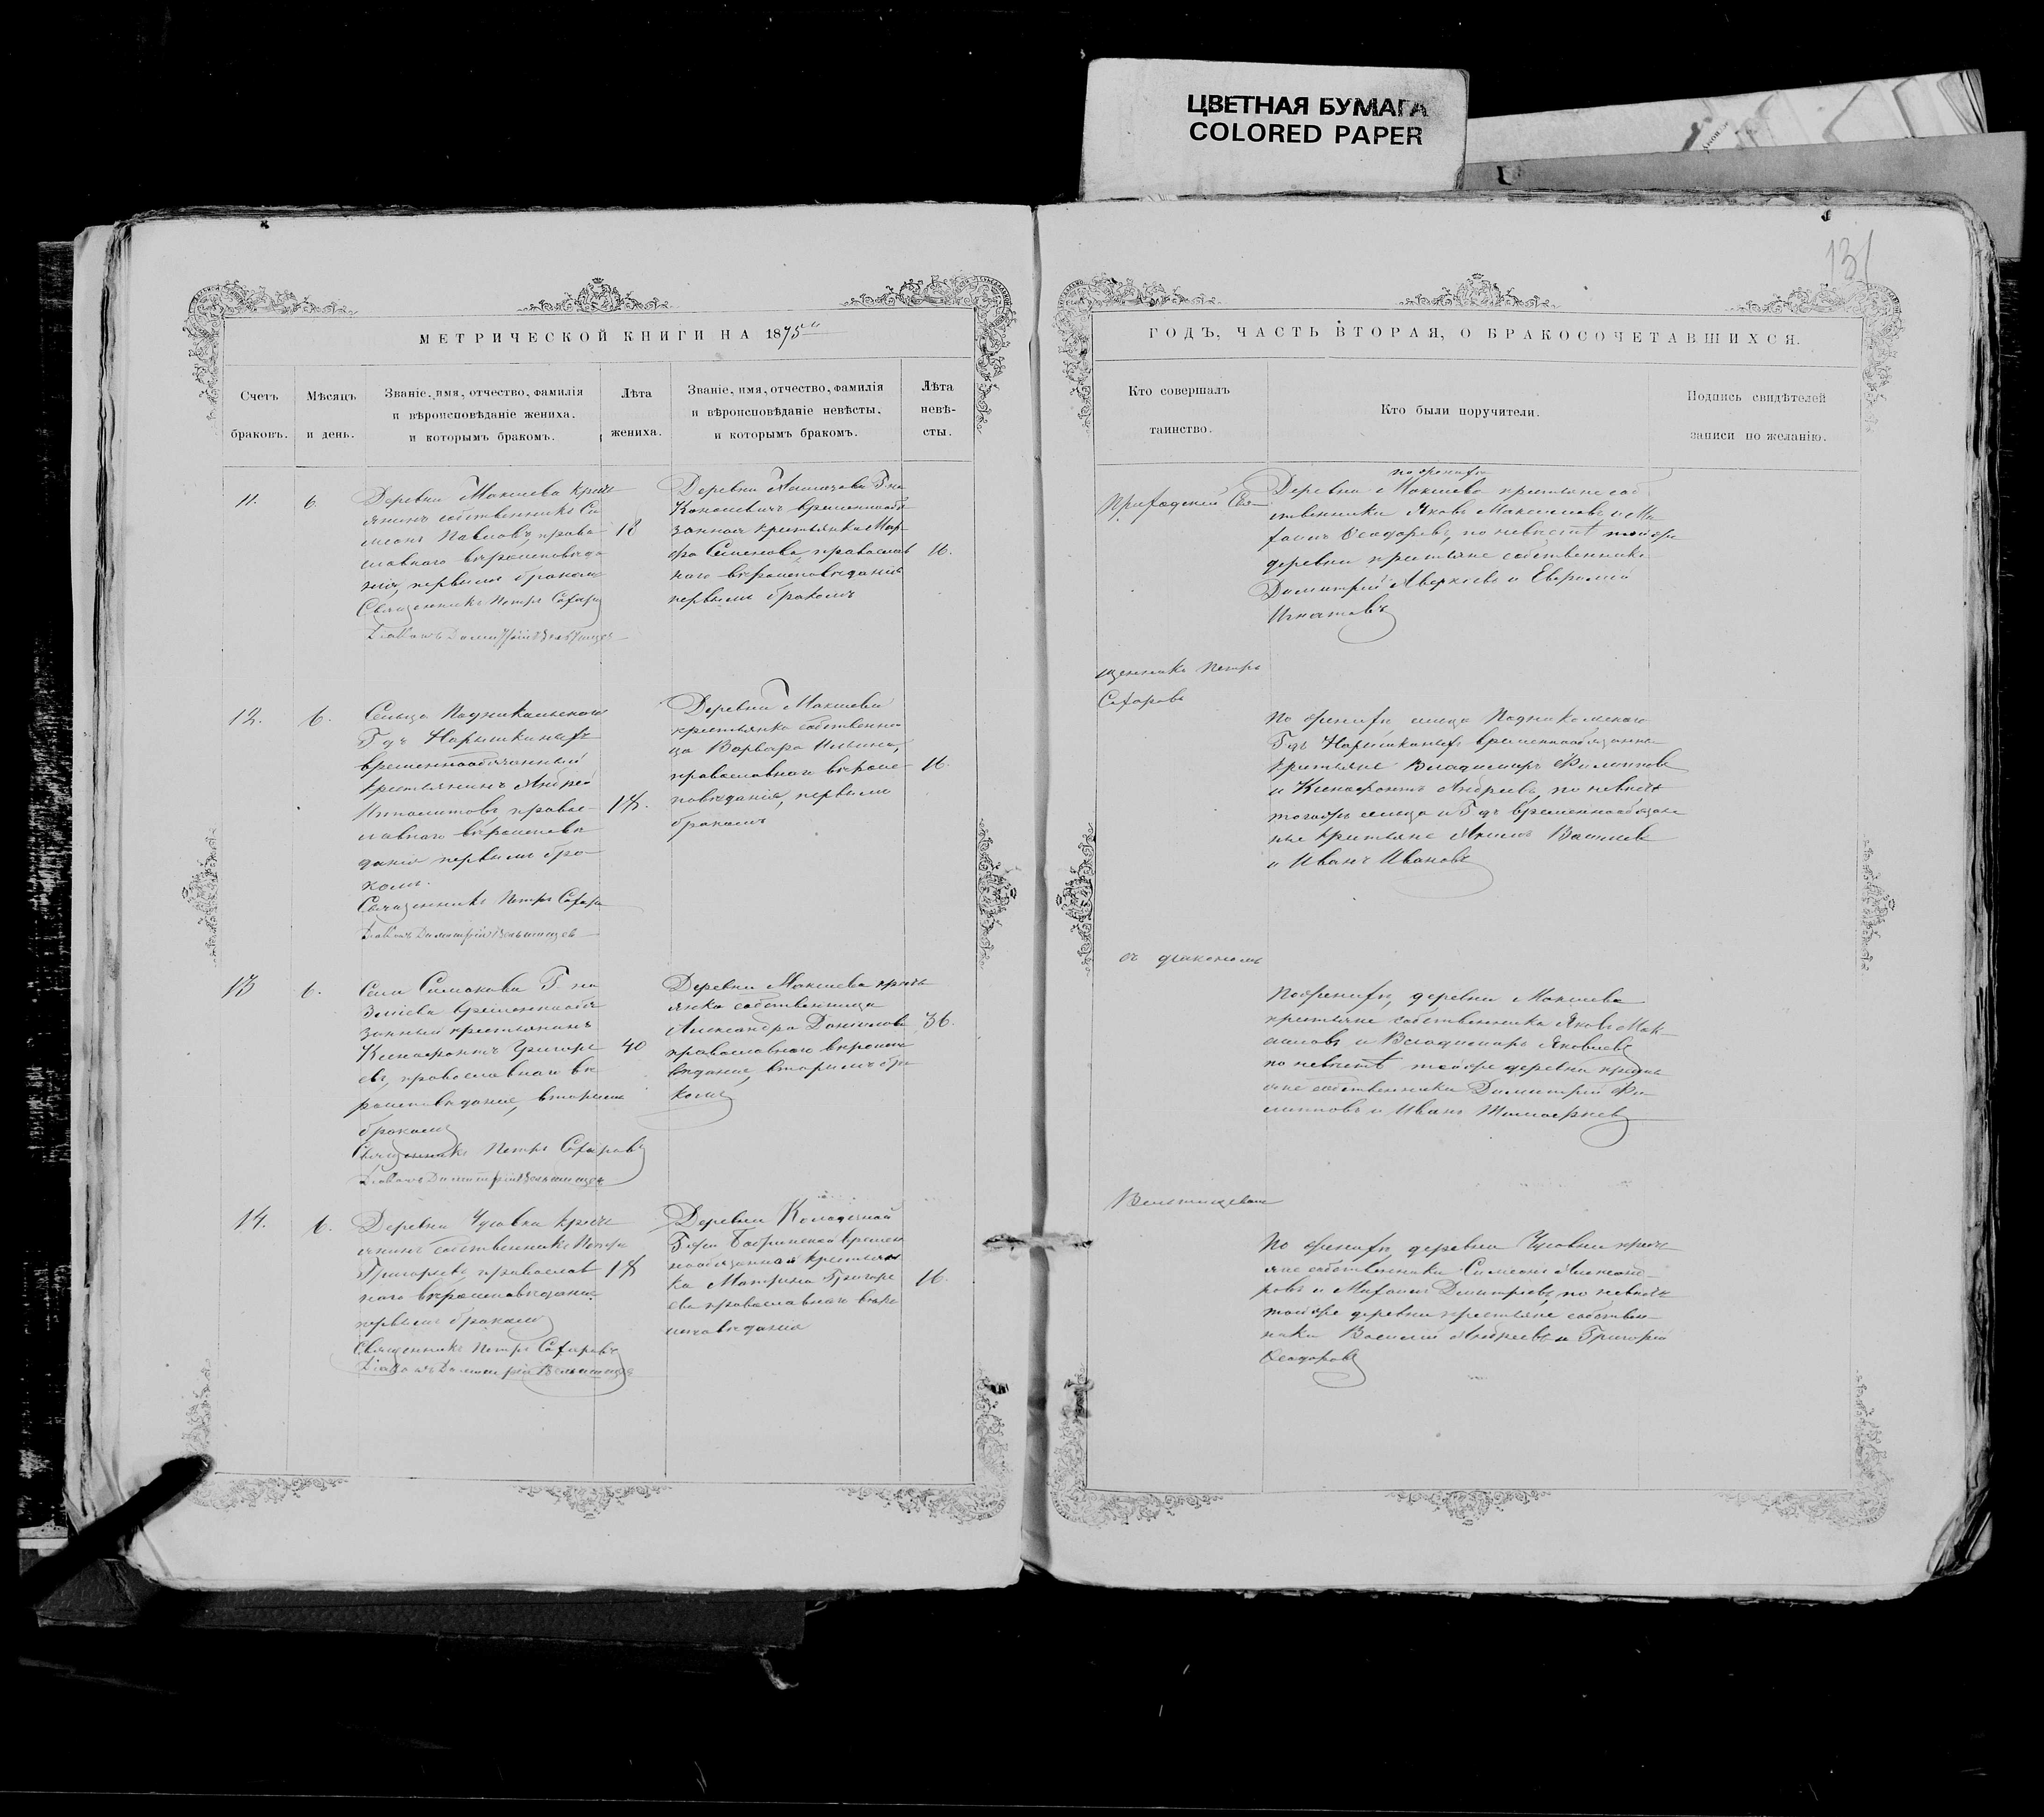 ЦВЕТНАЯ БУМАГА
COLORED PAPER
131
МЕТРИЧЕСКОЙ КНИГИ НА 1875
ГОДЪ, ЧАСТЬ ВТОРАЯ, О БРАКОСОЧЕТАВШИХСЯ.
Счетъ
браковъ.
Мѣсяцъ
и день.
Званіе, имя, отчество, фамилія
и вѣроисповѣданіе жениха,
и которымъ бракомъ.
Лѣта
жениха.
Званіе, имя, отчество, фамилія
и вѣроисповѣданіе невѣсты,
и которымъ бракомъ.
Лѣта
невѣ-
сты.
Кто совершалъ
таинство.
Кто были поручители.
Подпись свидѣтелей
записи по желанію.
11.
6.
Деревни Макшева кресть
янинъ собственникъ Си
меонъ Павловъ, право
славнаго вѣроисповѣда
нія, первымъ бракомъ
Священникъ Петръ Сахаров
18
Деревни
временнообя
занная крестьянка Мар
фа Семенова православ
наго вѣроисповѣданія
первымъ бракомъ
16.
Приходскій Свя-
щенникъ Петръ
Сахаровъ
съ діакономъ
по женихѣ
Деревни Макшева крестьяне соб
ственники Яковъ Максимовъ и
Ѳеодоровъ, по невѣстѣ той же
деревни крестьяне собственники
Димитрій Аверкіевъ и Евфимій
Игнатовъ
12.
6.
Сельца
Г дъ Нарышкиныхъ
временнообязанный
крестьянинъ Андрей
Ипполитовъ, правос-
лавнаго вѣроисповѣ
данія первымъ бра-
комъ.
Священникъ Петръ Сахаров
18.
Деревни Макшева
крестьянка собственни
ца Варвара Ильина,
православнаго вѣроис
повѣданія, первымъ
бракомъ
16.
По женихѣ сельца
Г дъ Нарышкиныхъ временнообязанные
крестьяне Владимиръ Филиповъ
и Ксенофонтъ Андреевъ, по невѣстѣ
тогоже сельца и Г дъ временнообязан
ные крестьяне Акимъ Васильевъ
и Иванъ Ивановъ
13
6.
Села Симакова Г на
временнообя
занный крестьянинъ
Ксенофонтъ Григорь
евъ, православнаго вѣ
роисповѣданія, вторымъ
бракомъ
Священникъ Петръ Сахаровъ
40
Деревни Макшева кресть
янка собственница
Александра Данилова
православнаго вѣроиспо
вѣданія, вторымъ бра
комъ
36.
По женихѣ, деревни Макшева
крестьяне собственники Яковъ Мак
симовъ и Владимиръ Яковлевъ
по невѣстѣ той же деревни кресть
яне собственники Димитрій Фи
липповъ и Иванъ Тимофеевъ
14.
6.
Деревни Чусовки кресть
янинъ собственникъ Петръ
Григорьевъ, православ
наго вѣроисповѣданія
первымъ бракомъ
Священникъ Петръ Сахаровъ
18
Деревни Колодезной
времен
нообязанная крестьян
ка Матрена Григорь
ева православнаго вѣро
исповѣданія
16.
По женихѣ деревни Чусовки кресть
яне собственники Симеонъ Александ-
ровъ и Дмитріевъ, по невѣстѣ
той же деревни крестьяне собствен
ники Василій Андреевъ и Григорій
Ѳеодоровъ